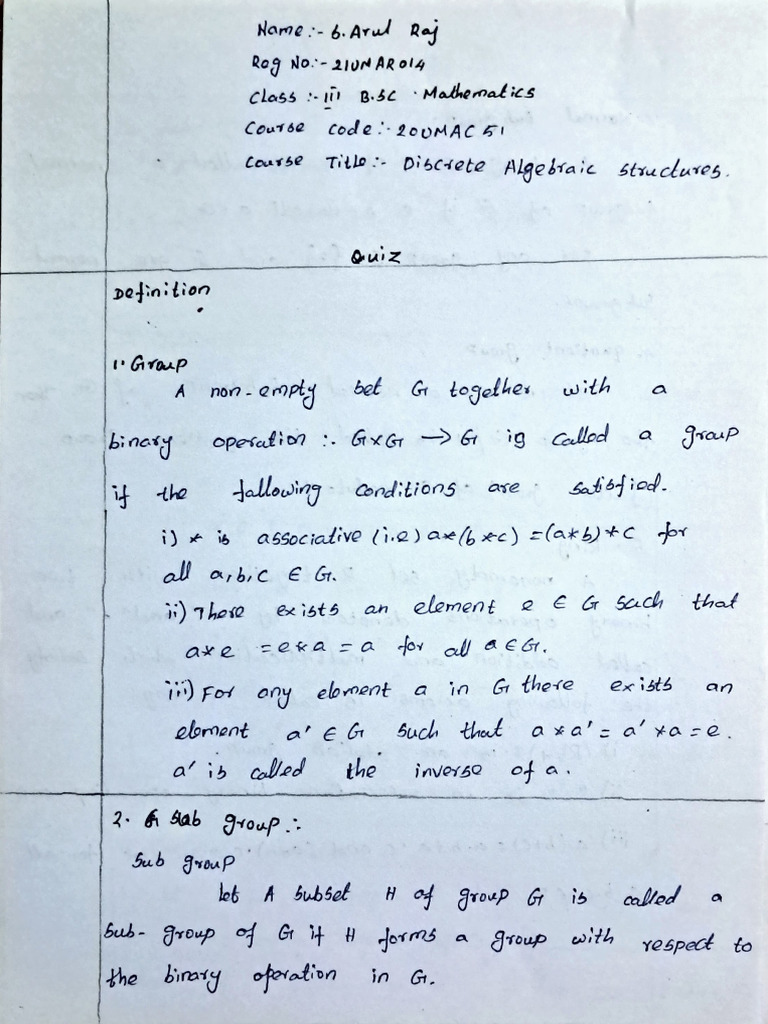 Name :- G. Arul Raj
Reg No:- 21UMAR014
Class :- III B.SC. Mathematics
Course code :- 20UMAC51
Course Title:- Discrete Algebraic structures.
Quiz
Definition
1. Group
A non-empty set G together with a
binary operation :. G×G → G is called a group
if the following conditions are satisfied.
i) * is associative (i.e) a*(b*c) = (a*b)*c for
all a,b,c ∈ G.
ii) There exists an element e ∈ G such that
a*e = e*a = a for all a∈G.
iii) For any element a in G there exists an
element a' ∈ G such that a*a' = a'*a = e.
a' is called the inverse of a.
2. Sub group :.
Sub group
let A subset H of group G is called a
sub- group of G if H forms a group with respect to
the binary operation in G.